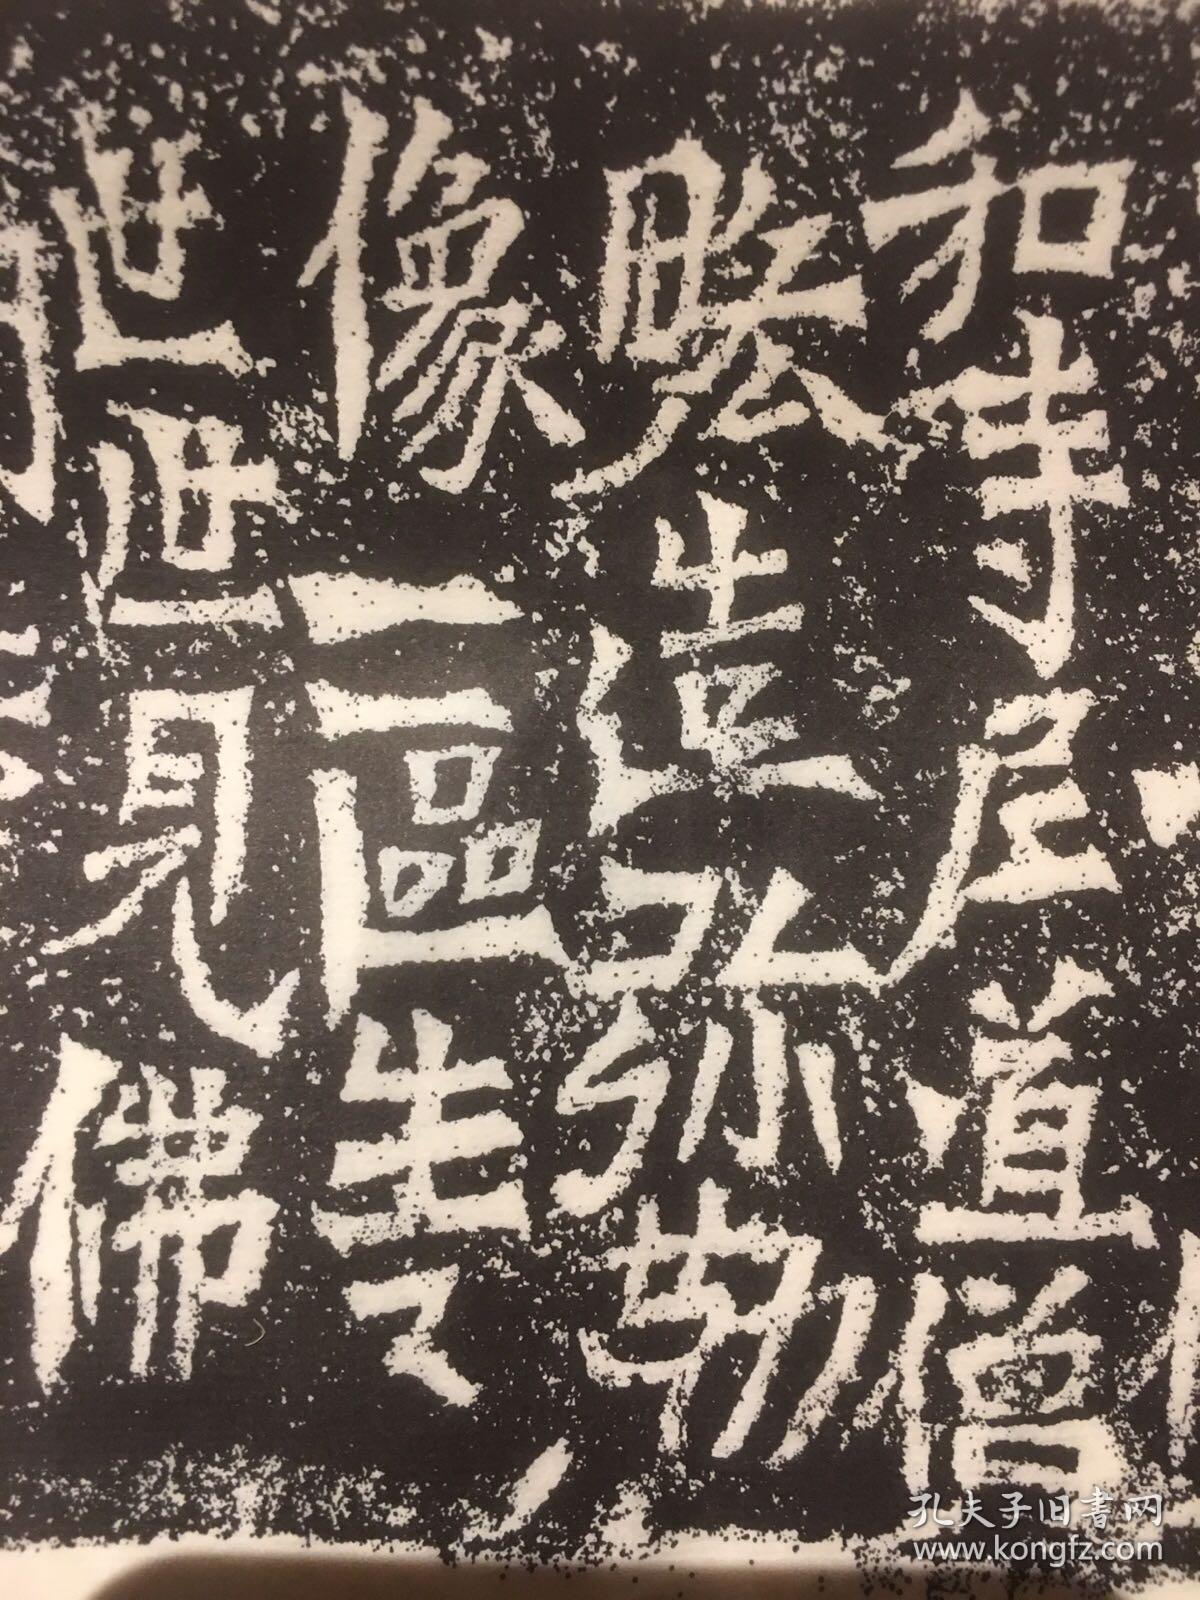 和寺尼道僧
賒造弥勒
像一區生〻
世世見佛
孔夫子旧书网
www.kongfz.com